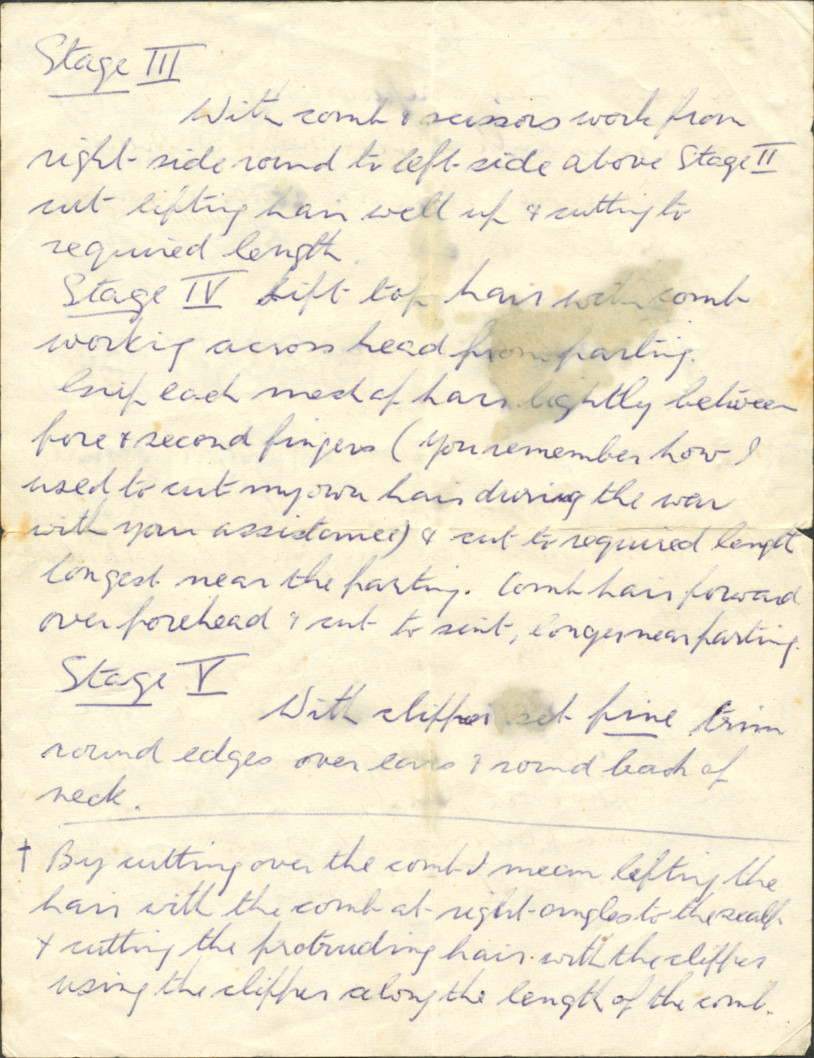 Stage III
With comb & scissors work from
right-side round to left-side above Stage II
cut lifting hair well up & cutting to
required length.
Stage IV Lift top hair with comb
working across head from parting.
Grip each mesh of hair lightly between
fore & second fingers (you remember how I
used to cut my own hair during the war
with your assistance) & cut to required lenght
longest near the parting. Comb hair forward
over forehead & cut to suit, longer near parting.
Stage V
With clipper set fine trim
round edges over ears & round back of
neck.
† By cutting over the comb I mean lifting the
hair with the comb at right-angles to the scalp
& cutting the protruding hair with the clipper
using the clipper along the length of the comb.